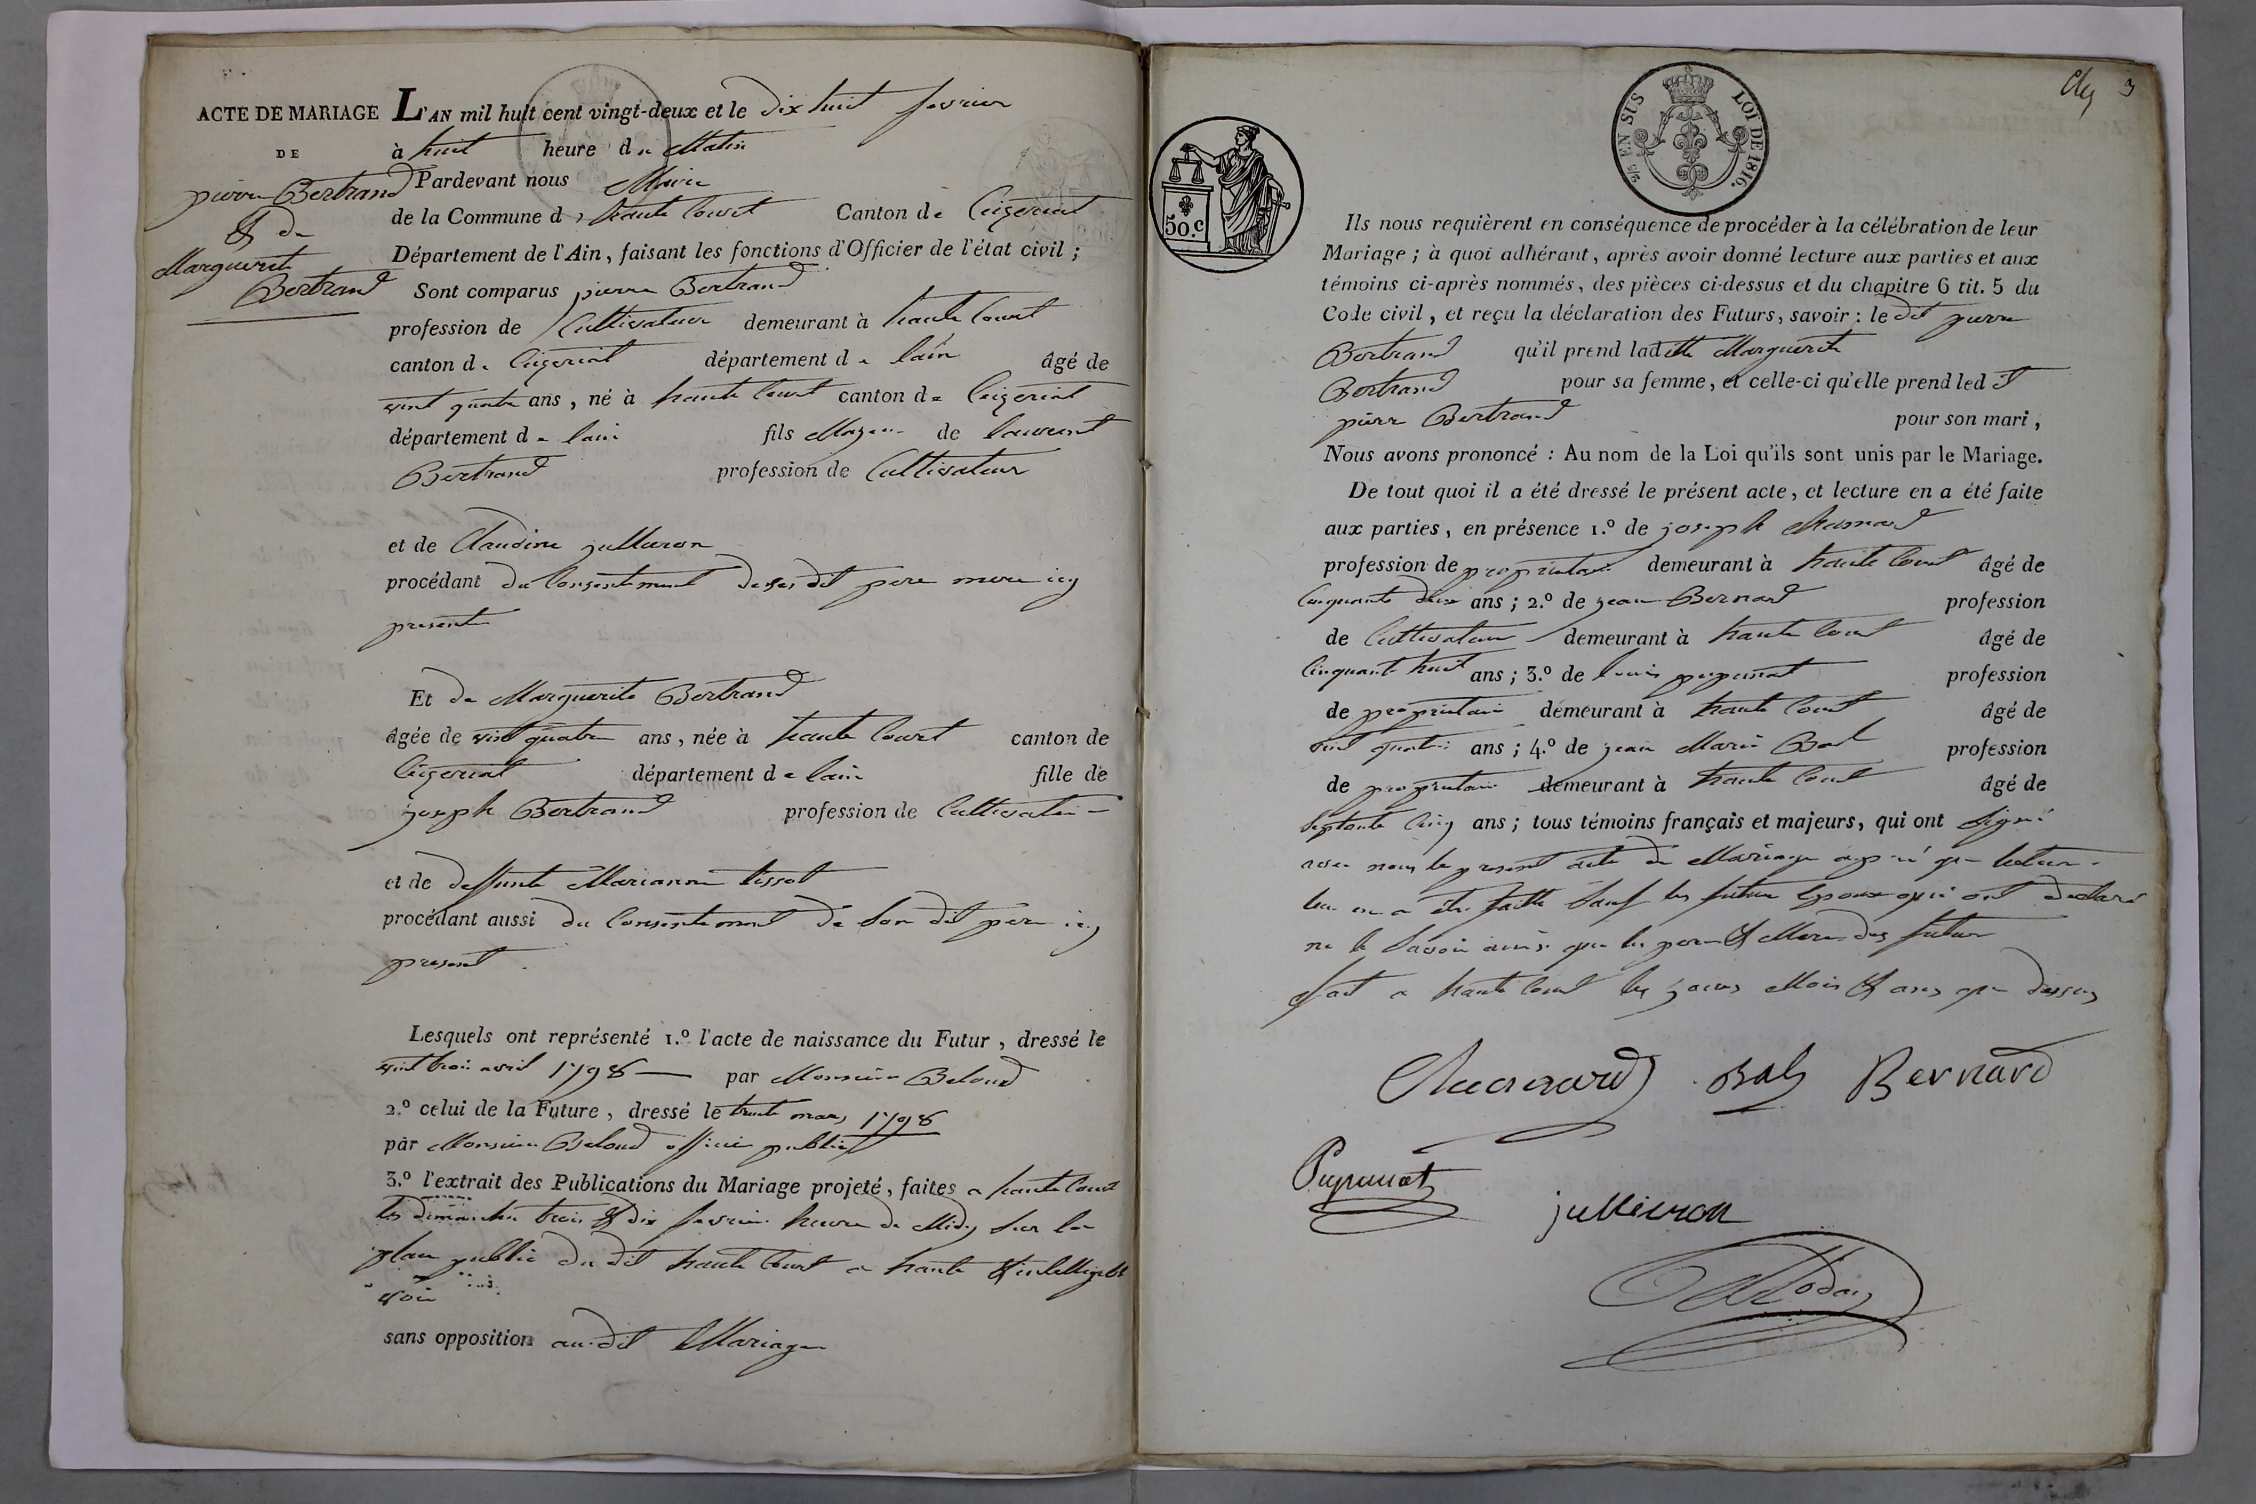 ACTE DE MARIAGE
DE
pierre Bertrand
& de
Marguerite
Bertrand
L'AN mil huit cent vingt-deux et le dix huit fevrier
à huit heure du Matin
Pardevant nous Maire
de la Commune de haute Court Canton de Ceizeriat
Département de l'Ain, faisant les fonctions d'Officier de l'état civil ;
Sont comparus pierre Bertrand
profession de Cultivateur demeurant à haute Court
canton de Ceizeriat département de lain âgé de
vint quatre ans, né à haute Court canton de Ceizeriat
département de lain fils Majeur de laurent
Bertrand profession de Cultivateur
et de Claudine jullieron
procédant du Consentement de ses dit pere mere icy
present
Et de Marguerite Bertrand
âgée de vint quatre ans, née à haute Court canton de
Ceizeriat département de lain fille de
joseph Bertrand profession de Cultivateur
et de deffunte Marianne tissot
procédant aussi du Consentement de Son dit pere icy
present
Lesquels ont représenté 1.º l'acte de naissance du Futur, dressé le
vint trois avril 1798 par Monsieur Beloud
2.º celui de la Future, dressé le trente mars 1798
par Monsieur Beloud officier public
3.º l'extrait des Publications du Mariage projeté, faites a haute Court
les dimanche trois & dix fevrier heure de Midy Sur la
place public du dit haute Court a haute & intelligible
voix
sans opposition au dit Mariage
5/5 EN SUS LOI DE 1816.
50.c
3
Ils nous requièrent en conséquence de procéder à la célébration de leur
Mariage ; à quoi adhérant, après avoir donné lecture aux parties et aux
témoins ci-après nommés, des pièces ci-dessus et du chapitre 6 tit. 5 du
Code civil, et reçu la déclaration des Futurs, savoir : le dit pierre
Bertrand qu'il prend ladite Marguerite
Bertrand pour sa femme, et celle-ci qu'elle prend ledit
pierre Bertrand pour son mari,
Nous avons prononcé : Au nom de la Loi qu'ils sont unis par le Mariage.
De tout quoi il a été dressé le présent acte, et lecture en a été faite
aux parties, en présence 1.º de joseph
profession de proprietaire demeurant à haute Court âgé de
Cinquante deux ans ; 2.º de jean Bernard profession
de Cultivateur demeurant à haute Court âgé de
Cinquante huit ans ; 3.º de louis profession
de proprietaire demeurant à haute Court âgé de
vint quatre ans ; 4.º de jean Marie Bal profession
de proprietaire demeurant à haute Court âgé de
Septante Cinq ans ; tous témoins français et majeurs, qui ont Signé
avec nous le present acte de Mariage apré que lecture
leur en a été faitte Sauf les futur Epoux qui ont declaré
ne le Savoir ainsi que les peres & Meres des futur
fait a haute Court les jours Mois & ans que dessus
Bal Bernard
jullieron